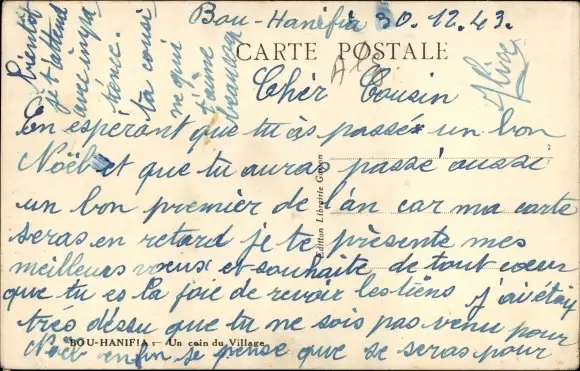 Bou-Hanifia 30.12.43.
CARTE POSTALE
Alg
Chèr Cousin
En esperant que tu as passé un bon
Noël et que tu auras passé aussi
un bon premier de l'an car ma carte
seras en retard je te présente mes
meilleurs voeux et souhaite de tout coeur
que tu es la joie de revoir les tiens j'avétay
trés déssu que tu ne sois pas venu pour
Noël enfin je pense que se seras pour
bientôt
je t'attend
avec
ta cousi
ne qui
t'aime
beaucoup
Alice
Edition Librairie
BOU-HANIFIA : Un coin du Village